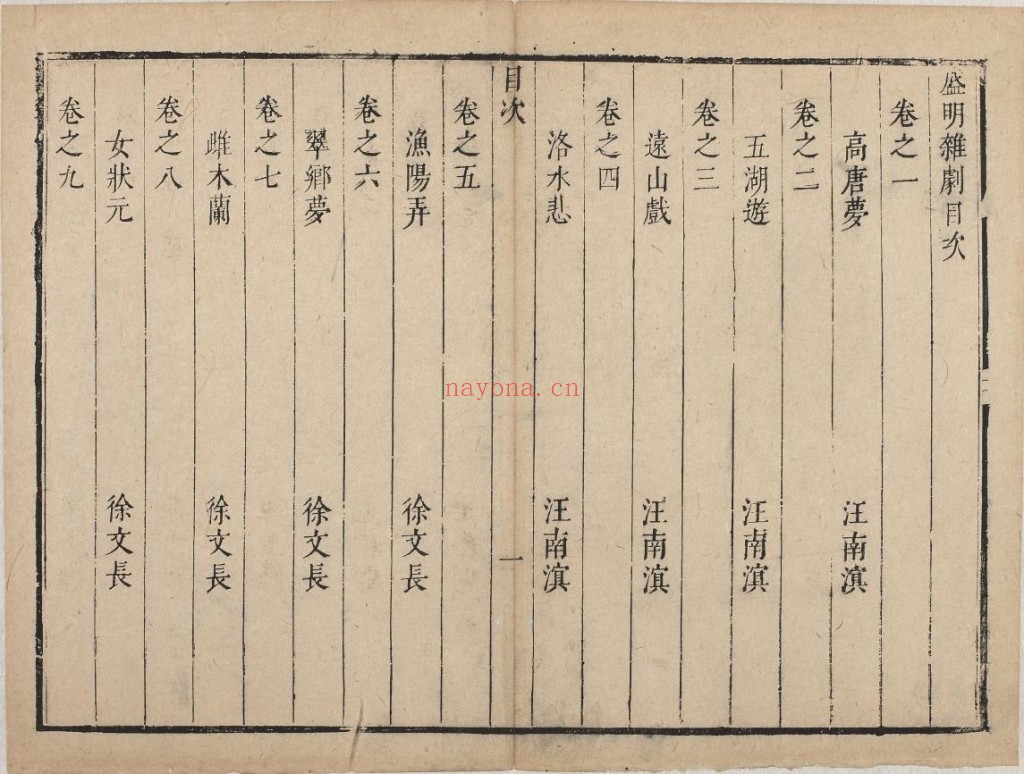 盛明雜劇目次
卷之一
高唐夢 汪南溟
卷之二
五湖遊 汪南溟
卷之三
遠山戲 汪南溟
卷之四
洛水悲 汪南溟
目次 一
卷之五
漁陽弄 徐文長
卷之六
翠鄉夢 徐文長
卷之七
雌木蘭 徐文長
卷之八
女狀元 徐文長
卷之九
nayona.cn